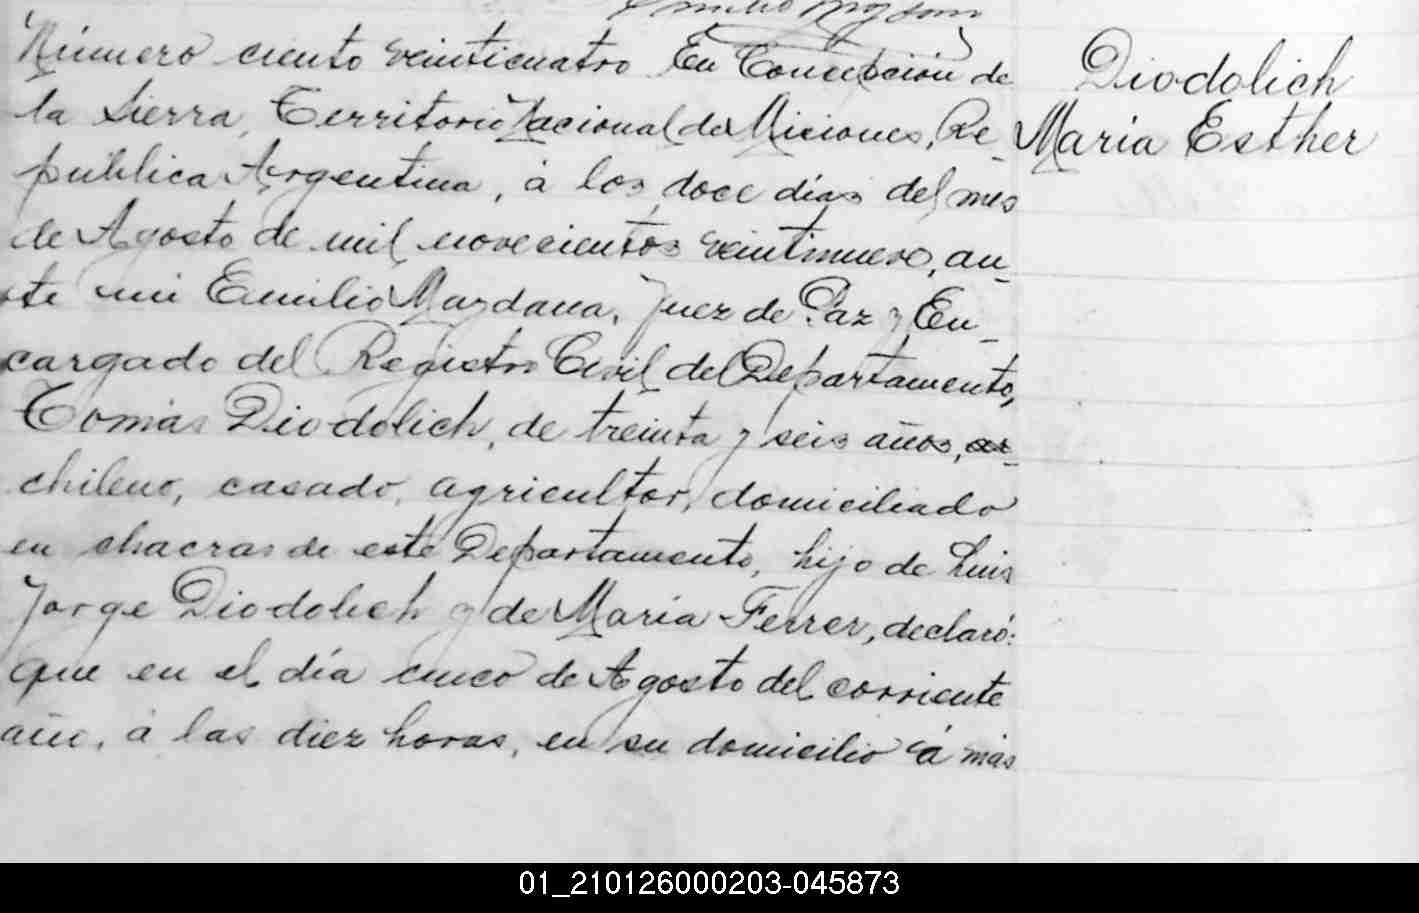 Número ciento veinticuatro En Concepción de
la Sierra, Territorio Nacional de Miciones, Re-
pública Argentina, á los doce días del mes
de Agosto de mil novecientos veintinueve, an-
te mi Emilio Mazdana, Juez de Paz y En-
cargado del Registro Civil del Departamento,
Tomás Diodolich, de treinta y seis años,
chileno, casado, agricultor, domiciliado
en chacras de este Departamento, hijo de Luis
Jorge Diodolich y de María Ferrer, declaró:
que en el día cinco de Agosto del corriente
año, á las diez horas, en su domicilio á más
Diodolich
María Esther
01_210126000203-045873